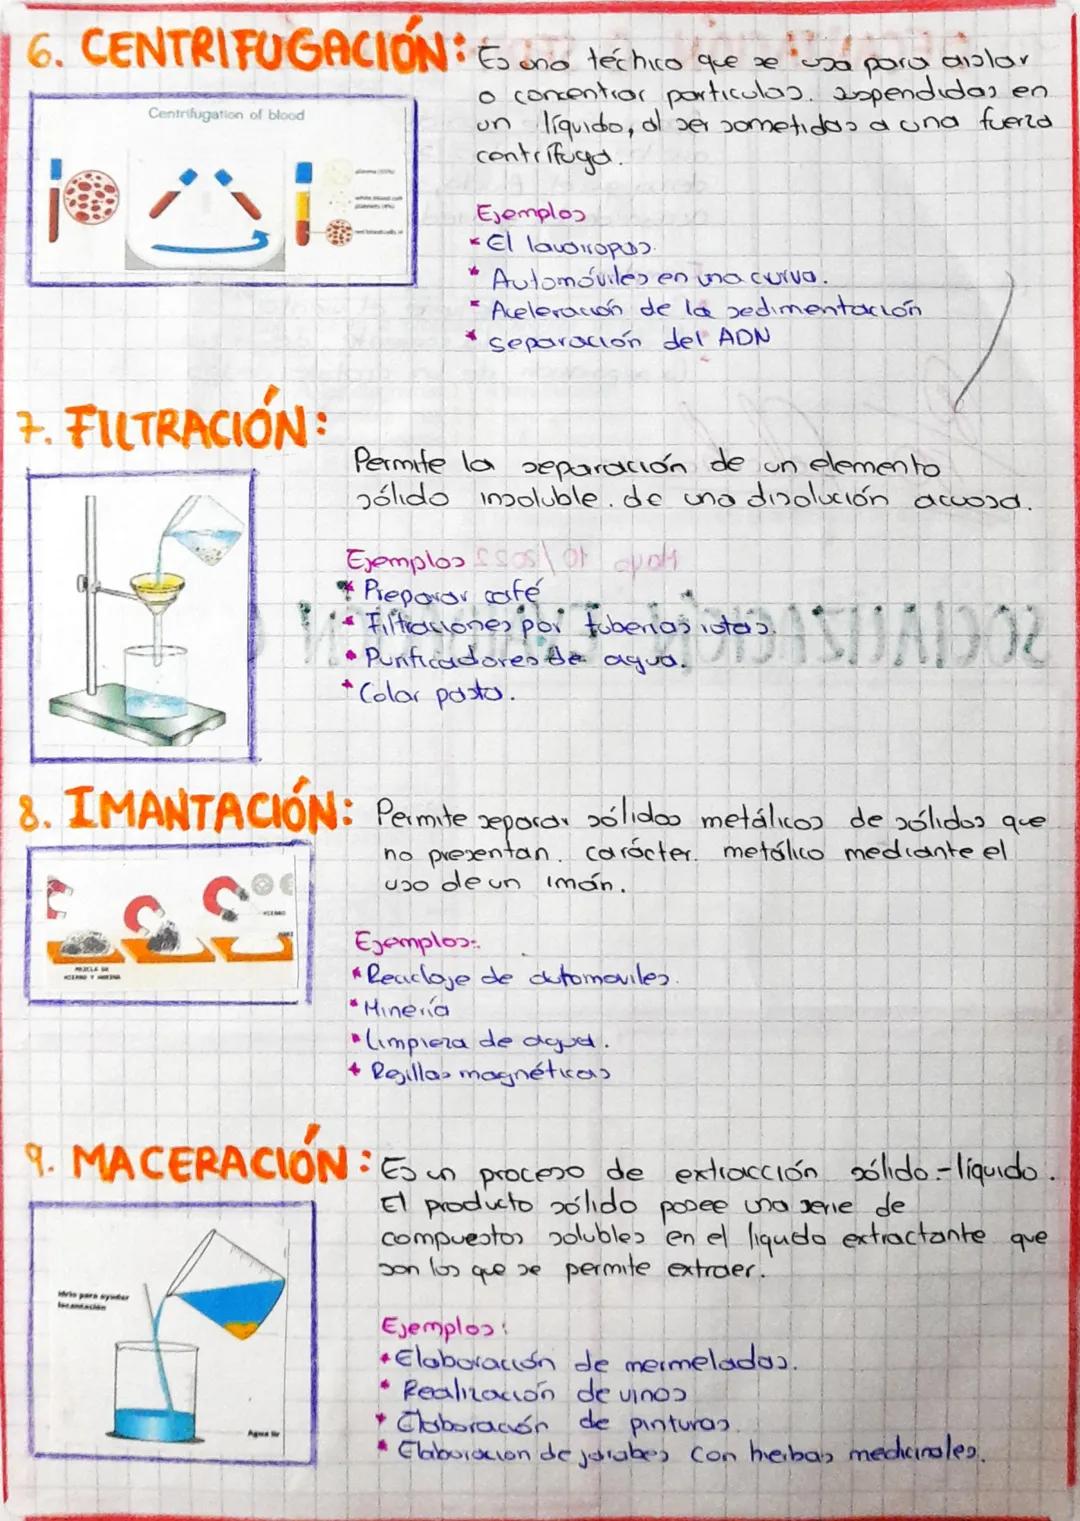 6. CENTRIFUGACIÓN: Es una técnica que se usa para aislar
o concentrar partículas. suspendidas en
un líquido, al ser sometidas a una fuerza
centrífuga.
Centrifugation of blood
plasma (55%)
Ejemplos
* El lavarropas.
* Automóviles en una curva.
* Aceleración de la sedimentación
* separación del ADN
7. FILTRACIÓN:
Permite la separación de un elemento
sólido insoluble. de una disolución acuosa.
Ejemplos
Mayo 10/2022
* Preparar café
* Filtraciones por tuberias rotas.
SOCIALIZACIÓN
* Purificadores de agua.
* Colar pasta.
8. IMANTACIÓN: Permite separar sólidos metálicos de sólidos que
no presentan. carácter. metálico mediante el
uso de un imán.
HIERRO
MEZCLA DE
HIERRO Y HARINA
Ejemplos:
* Reciclaje de automoviles.
* Minería
* limpieza de agua.
* Rejillas magnéticas
9. MACERACIÓN: Es un proceso de extracción sólido-líquido.
El producto sólido posee una serie de
compuestos solubles en el liquido extractante que
son los que se permite extraer.
idrio para ayudar
Ejemplos:
* Elaboración de mermeladas.
* Realización de vinos
* Elaboración de pinturas.
* Elaboracion de jarabes con heibas medicinales.